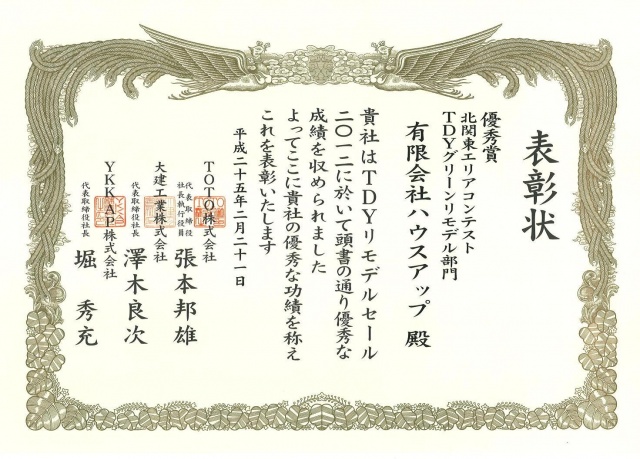 表彰状
優秀賞
北関東エリアコンテスト
TDYグリーンリモデル部門
有限会社ハウスアップ 殿
貴社はTDYリモデルセール
二〇一二に於いて頭書の通り優秀な
成績を収められました
よってここに貴社の優秀な功績を称え
これを表彰いたします
平成二十五年二月二十一日
TOTO株式会社
代表取締役
社長執行役員
張本邦雄
大建工業株式会社
代表取締役社長
澤木良次
YKKAP株式会社
代表取締役社長
堀 秀充